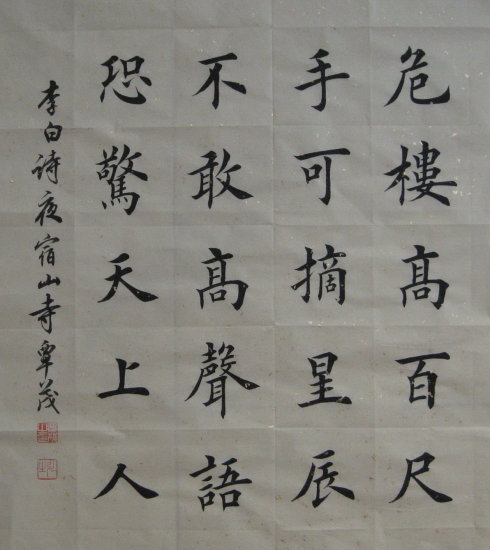 危樓高百尺
手可摘星辰
不敢高聲語
恐驚天上人
李白詩夜宿山寺覃茂